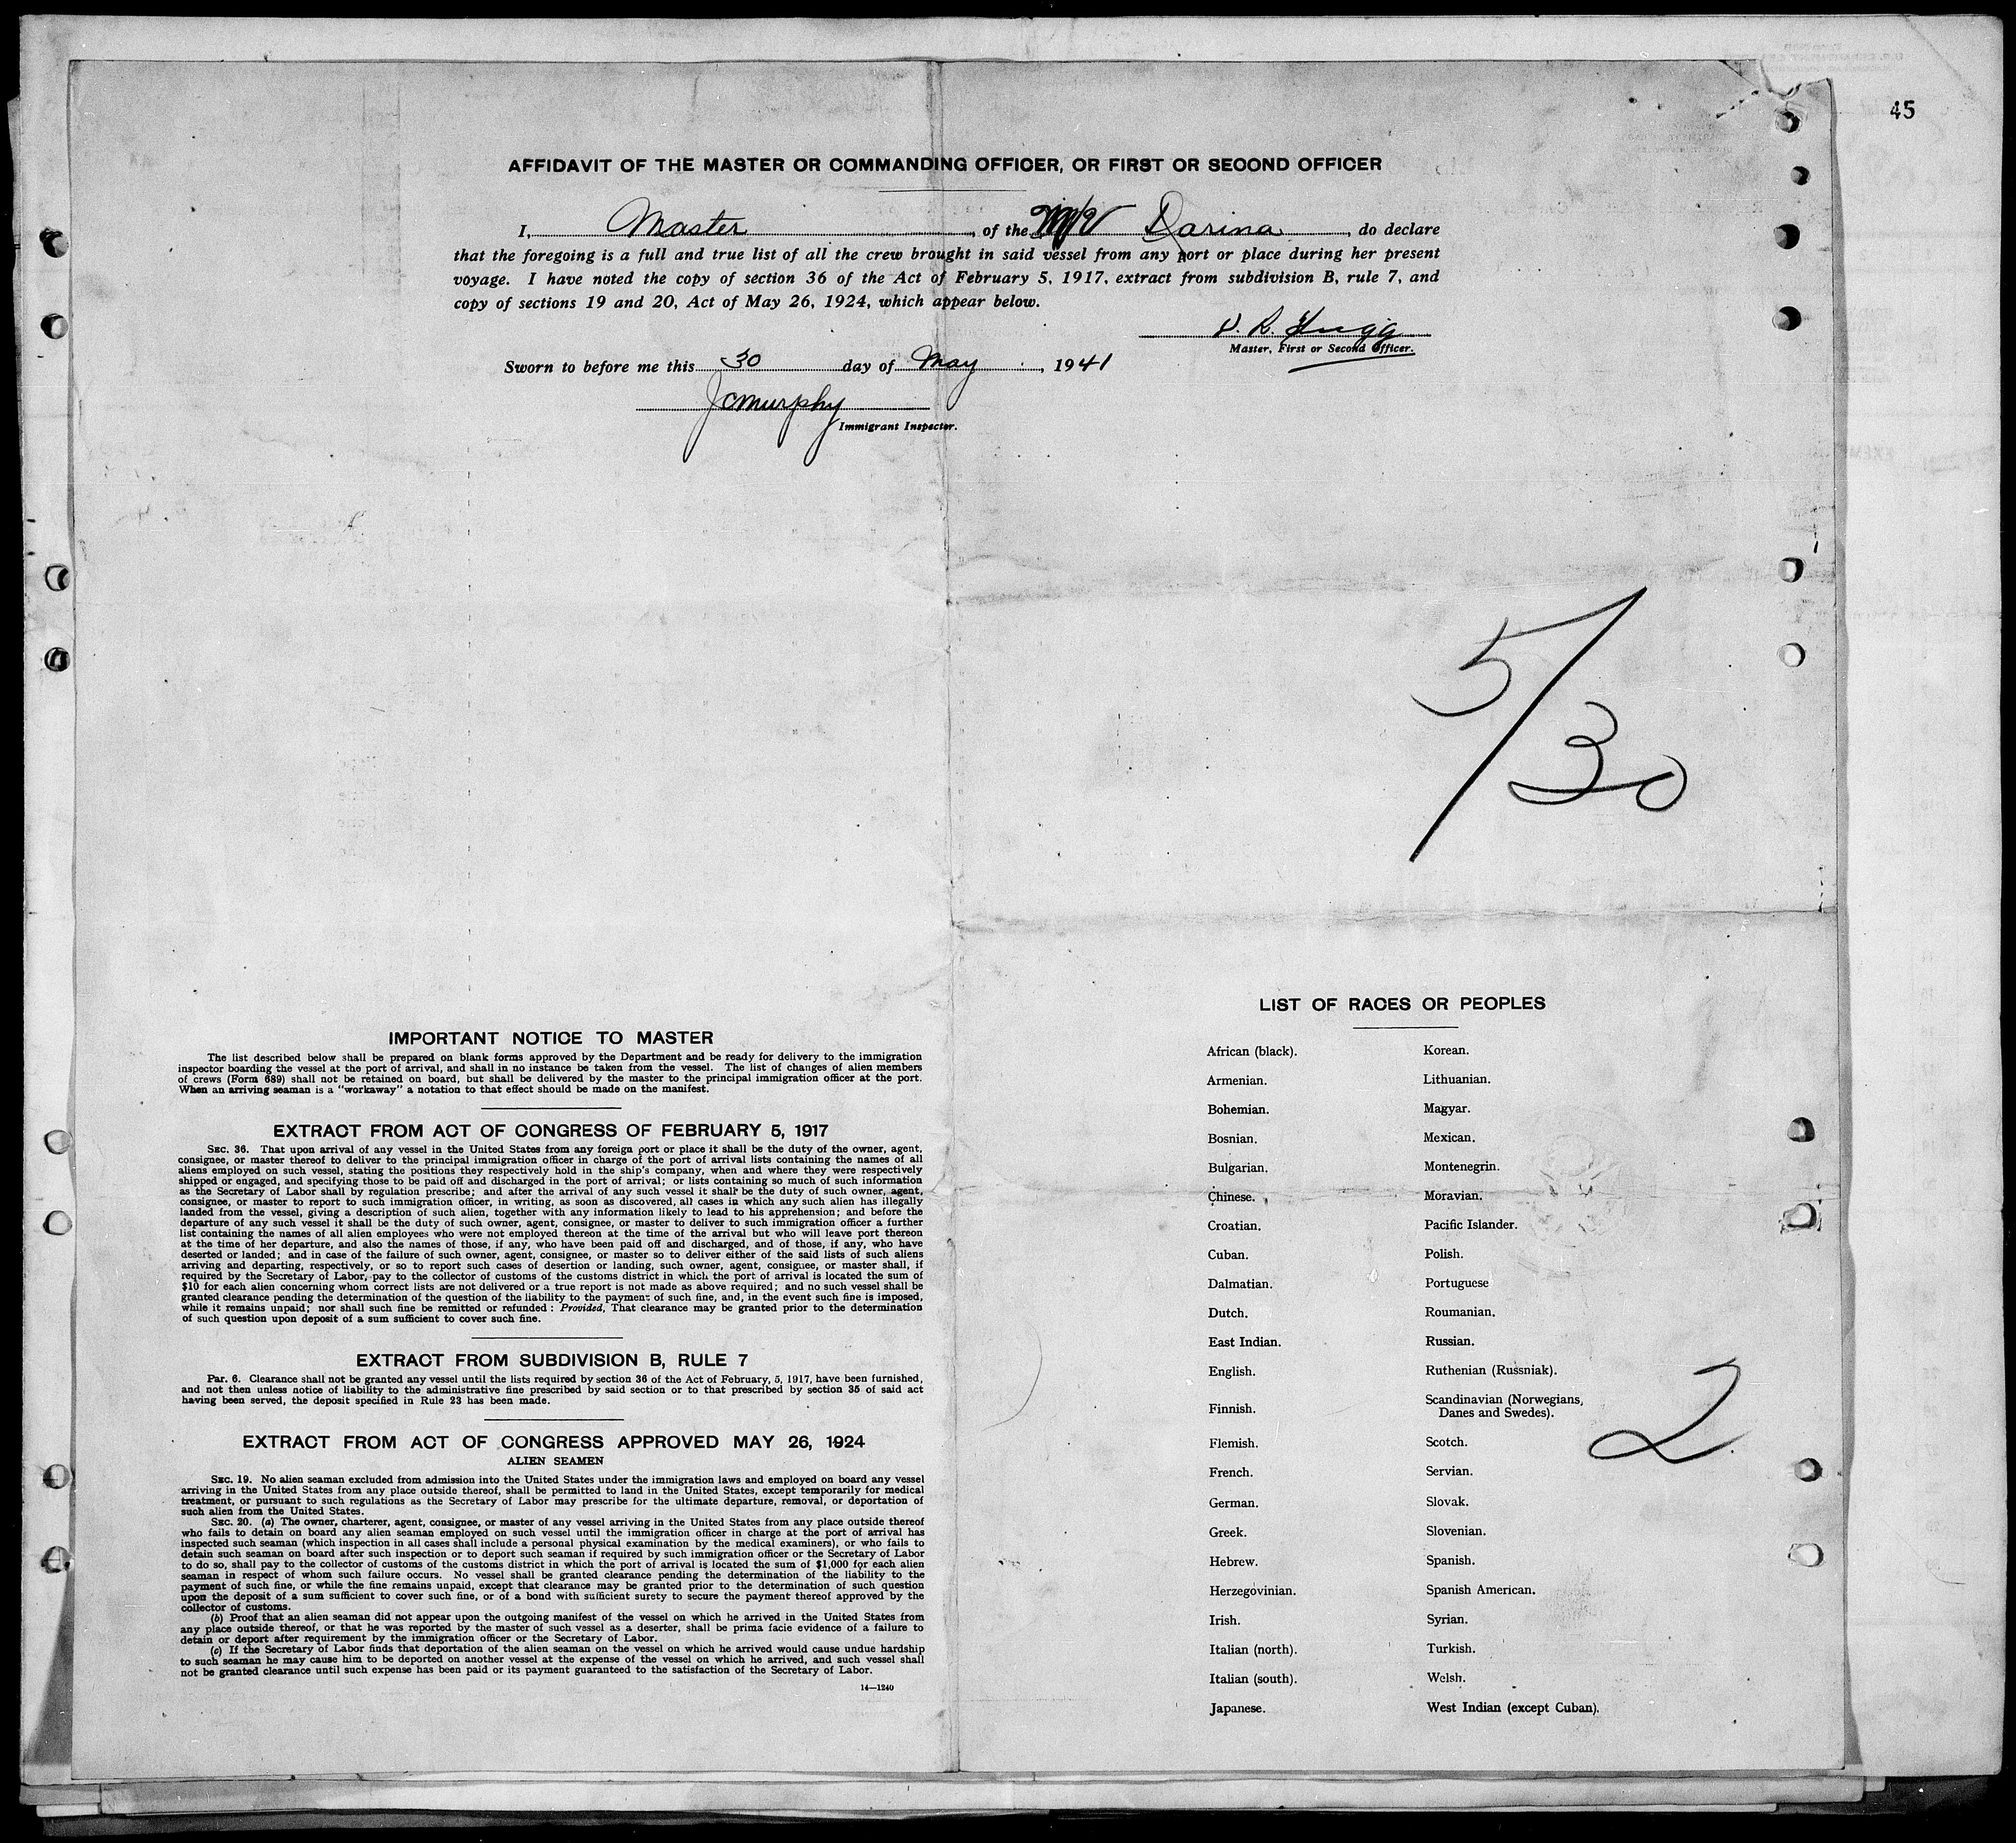 45
AFFIDAVIT OF THE MASTER OR COMMANDING OFFICER, OR FIRST OR SECOND OFFICER
I, Master, of the M/V Darina, do declare
that the foregoing is a full and true list of all the crew brought in said vessel from any port or place during her present
voyage. I have noted the copy of section 36 of the Act of February 5, 1917, extract from subdivision B, rule 7, and
copy of sections 19 and 20, Act of May 26, 1924, which appear below.
Master, First or Second Officer.
Sworn to before me this 30 day of May, 1941
JCMurphy
Immigrant Inspector.
5/30
IMPORTANT NOTICE TO MASTER
The list described below shall be prepared on blank forms approved by the Department and be ready for delivery to the immigration
inspector boarding the vessel at the port of arrival, and shall in no instance be taken from the vessel. The list of changes of alien members
of crews (Form 689) shall not be retained on board, but shall be delivered by the master to the principal immigration officer at the port.
When an arriving seaman is a "workaway" a notation to that effect should be made on the manifest.
EXTRACT FROM ACT OF CONGRESS OF FEBRUARY 5, 1917
SEC. 36. That upon arrival of any vessel in the United States from any foreign port or place it shall be the duty of the owner, agent,
consignee, or master thereof to deliver to the principal immigration officer in charge of the port of arrival lists containing the names of all
aliens employed on such vessel, stating the positions they respectively hold in the ship's company, when and where they were respectively
shipped or engaged, and specifying those to be paid off and discharged in the port of arrival; or lists containing so much of such information
as the Secretary of Labor shall by regulation prescribe; and after the arrival of any such vessel it shall be the duty of such owner, agent,
consignee, or master to report to such immigration officer, in writing, as soon as discovered, all cases in which any such alien has illegally
landed from the vessel, giving a description of such alien, together with any information likely to lead to his apprehension; and before the
departure of any such vessel it shall be the duty of such owner, agent, consignee, or master to deliver to such immigration officer a further
list containing the names of all alien employees who were not employed thereon at the time of the arrival but who will leave port thereon
at the time of her departure, and also the names of those, if any, who have been paid off and discharged, and of those, if any, who have
deserted or landed; and in case of the failure of such owner, agent, consignee, or master so to deliver either of the said lists of such aliens
arriving and departing, respectively, or so to report such cases of desertion or landing, such owner, agent, consignee, or master shall, if
required by the Secretary of Labor, pay to the collector of customs of the customs district in which the port of arrival is located the sum of
$10 for each alien concerning whom correct lists are not delivered or a true report is not made as above required; and no such vessel shall be
granted clearance pending the determination of the question of the liability to the payment of such fine, and, in the event such fine is imposed,
while it remains unpaid; nor shall such fine be remitted or refunded: Provided, That clearance may be granted prior to the determination
of such question upon deposit of a sum sufficient to cover such fine.
EXTRACT FROM SUBDIVISION B, RULE 7
Par. 6. Clearance shall not be granted any vessel until the lists required by section 36 of the Act of February, 5, 1917, have been furnished,
and not then unless notice of liability to the administrative fine prescribed by said section or to that prescribed by section 35 of said act
having been served, the deposit specified in Rule 23 has been made.
EXTRACT FROM ACT OF CONGRESS APPROVED MAY 26, 1924
ALIEN SEAMEN
SEC. 19. No alien seaman excluded from admission into the United States under the immigration laws and employed on board any vessel
arriving in the United States from any place outside thereof, shall be permitted to land in the United States, except temporarily for medical
treatment, or pursuant to such regulations as the Secretary of Labor may prescribe for the ultimate departure, removal, or deportation of
such alien from the United States.
SEC. 20. (a) The owner, charterer, agent, consignee, or master of any vessel arriving in the United States from any place outside thereof
who fails to detain on board any alien seaman employed on such vessel until the immigration officer in charge at the port of arrival has
inspected such seaman (which inspection in all cases shall include a personal physical examination by the medical examiners), or who fails to
detain such seaman on board after such inspection or to deport such seaman if required by such immigration officer or the Secretary of Labor
to do so, shall pay to the collector of customs of the customs district in which the port of arrival is located the sum of $1,000 for each alien
seaman in respect of whom such failure occurs. No vessel shall be granted clearance pending the determination of the liability to the
payment of such fine, or while the fine remains unpaid, except that clearance may be granted prior to the determination of such question
upon the deposit of a sum sufficient to cover such fine, or of a bond with sufficient surety to secure the payment thereof approved by the
collector of customs.
(b) Proof that an alien seaman did not appear upon the outgoing manifest of the vessel on which he arrived in the United States from
any place outside thereof, or that he was reported by the master of such vessel as a deserter, shall be prima facie evidence of a failure to
detain or deport after requirement by the immigration officer or the Secretary of Labor.
(c) If the Secretary of Labor finds that deportation of the alien seaman on the vessel on which he arrived would cause undue hardship
to such seaman he may cause him to be deported on another vessel at the expense of the vessel on which he arrived, and such vessel shall
not be granted clearance until such expense has been paid or its payment guaranteed to the satisfaction of the Secretary of Labor.
14—1240
LIST OF RACES OR PEOPLES
African (black).
Armenian.
Bohemian.
Bosnian.
Bulgarian.
Chinese.
Croatian.
Cuban.
Dalmatian.
Dutch.
East Indian.
English.
Finnish.
Flemish.
French.
German.
Greek.
Hebrew.
Herzegovinian.
Irish.
Italian (north).
Italian (south).
Japanese.
Korean.
Lithuanian.
Magyar.
Mexican.
Montenegrin.
Moravian.
Pacific Islander.
Polish.
Portuguese
Roumanian.
Russian.
Ruthenian (Russniak).
Scandinavian (Norwegians,
Danes and Swedes).
Scotch.
Servian.
Slovak.
Slovenian.
Spanish.
Spanish American.
Syrian.
Turkish.
Welsh.
West Indian (except Cuban).
2